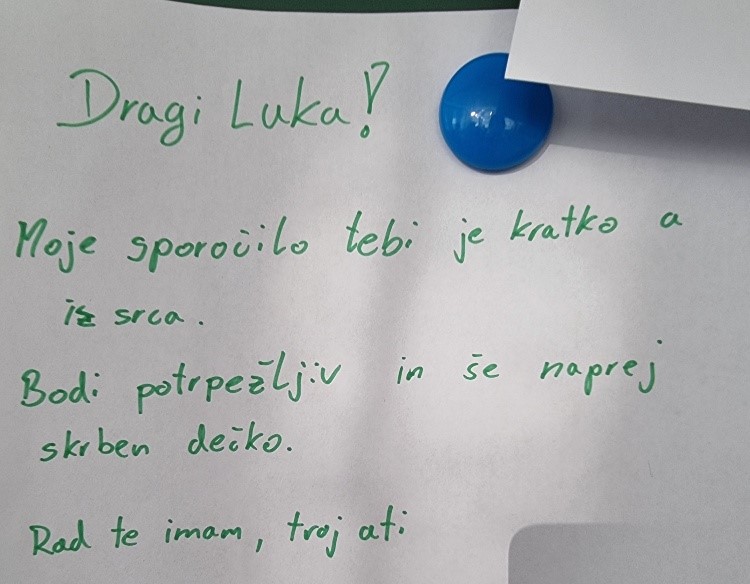 Dragi Luka!
Moje sporočilo tebi je kratko a
iz srca.
Bodi potrpežljiv in še naprej
skrben dečko.
Rad te imam, troj ati